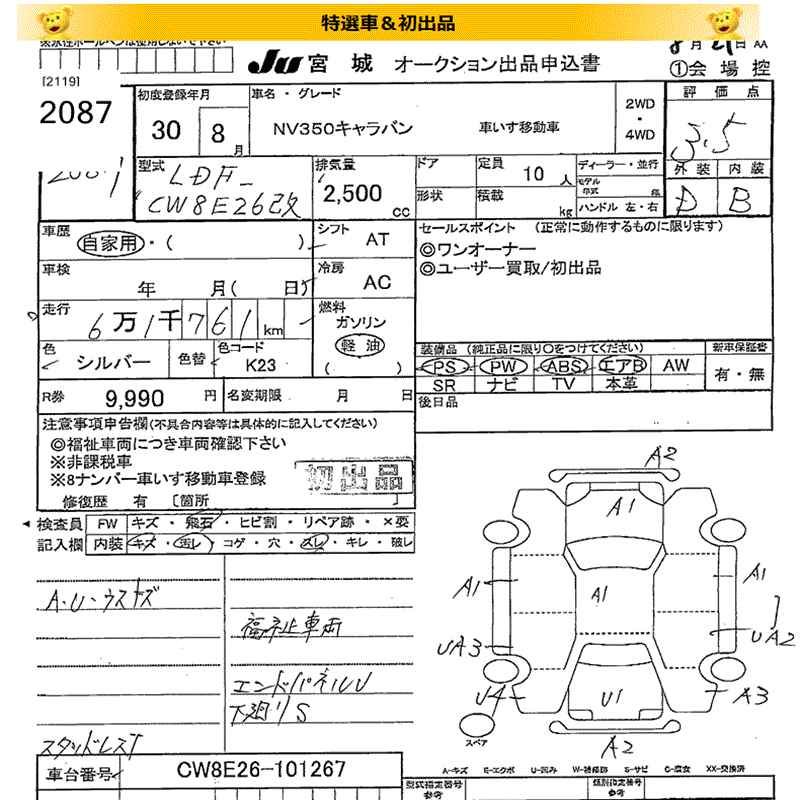 特選車&初出品
8月21日 AA
JU 宮城 オークション出品申込書
①会場控
[2119]
2087
初度登録年月
30 8月
車名・グレード
NV350キャラバン 車いす移動車
2WD
・
4WD
評価点
3.5
型式
LDF-
CW8E26改
排気量
2,500 cc
ドア
形状
定員 10 人
積載 kg
ディーラー・並行
モデル
年式
ハンドル 左・右
外装 内装
D B
車歴
自家用・( )
シフト
AT
セールスポイント (正常に動作するものに限ります)
◎ワンオーナー
◎ユーザー買取/初出品
車検
年 月( 日)
冷房
AC
走行
6万1千761km
燃料
ガソリン
軽油
( )
色
シルバー
色替
色コード
K23
装備品 (純正品に限り○をつけてください)
新車保証書
PS PW ABS エアB AW
SR ナビ TV 本革
有・無
R券 9,990 円
名変期限 月 日
後日品
注意事項申告欄(不具合内容等は具体的に記入してください)
◎福祉車両につき車両確認下さい
※非課税車
※8ナンバー車いす移動車登録
初出品
修復歴 有 〔箇所 〕
検査員
記入欄
FW キズ・飛石・ヒビ割・リペア跡・×要
内装 キズ・汚レ・コゲ・穴・スレ・キレ・破レ
A・U・ウスキズ
福祉車両
エンドパネルU
下廻りS
スタッドレス
A2
A1
A1
A1
A1
UA3
UA2
U4
U1
A3
A2
スペア
A-キズ E-エクボ U-凹み W-補修跡 S-サビ C-腐食 XX-交換済
車台番号
CW8E26-101267
型式指定番号
参考
類別指定番号
参考